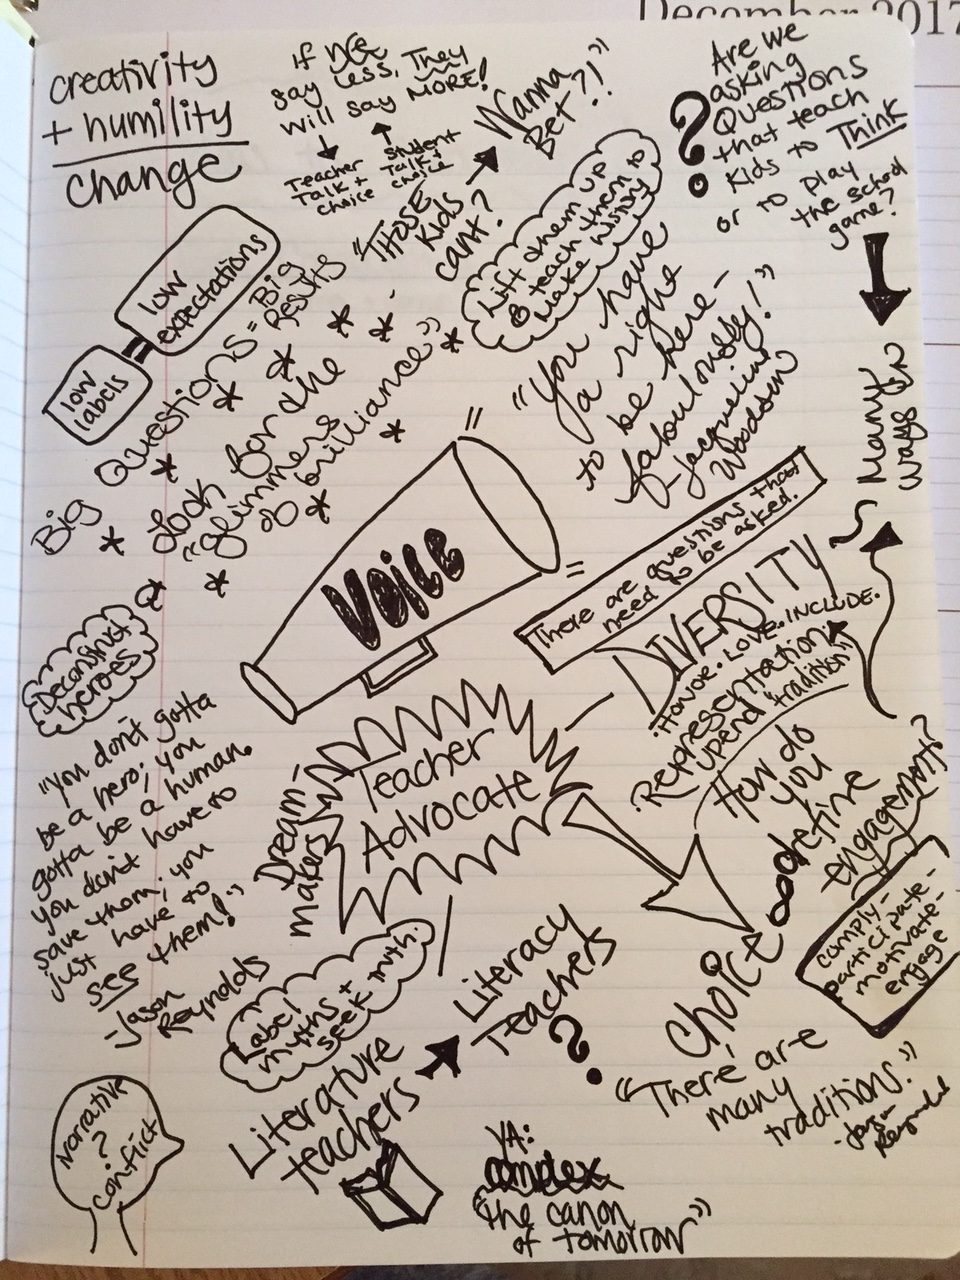 December 2017
creativity
+ humility
change
If WE
say Less, They
will say MORE!
Teacher
Talk +
choice
Student
Talk +
choice
"THOSE
Kids
can't?
Wanna
Bet?!"
Are we
asking
Questions
that teach
Kids to Think
or to play
the school
game?
?
low
expectations
=
low
labels
Big Questions = Big
Results
Look for the
"glimmers
of brilliance"
Lift them up
& teach them to
make history
"You have
a right
to be here-
fabulously!"
-Jacqueline
Woodson
Many
ways
VOICE
There are questions that
need to be asked.
DIVERSITY
HONOR. LOVE. INCLUDE.
Representation
upend "tradition"
Deconstruct
heroes
"You don't gotta
be a hero; you
gotta be a human.
you don't have to
save them; you
just have to
see them!"
-Jason
Reynolds
Dream-
makers
Teacher
Advocate
How do
you
define
engagement?
comply-
participate-
motivate-
engage
Choice
Label
myths +
seek truth.
Literature
teachers
Literacy
Teachers
?
"There are
many
traditions."
-Jason
Reynolds
Narrative
?
conflict
YA:
complex
"the canon
of tomorrow"